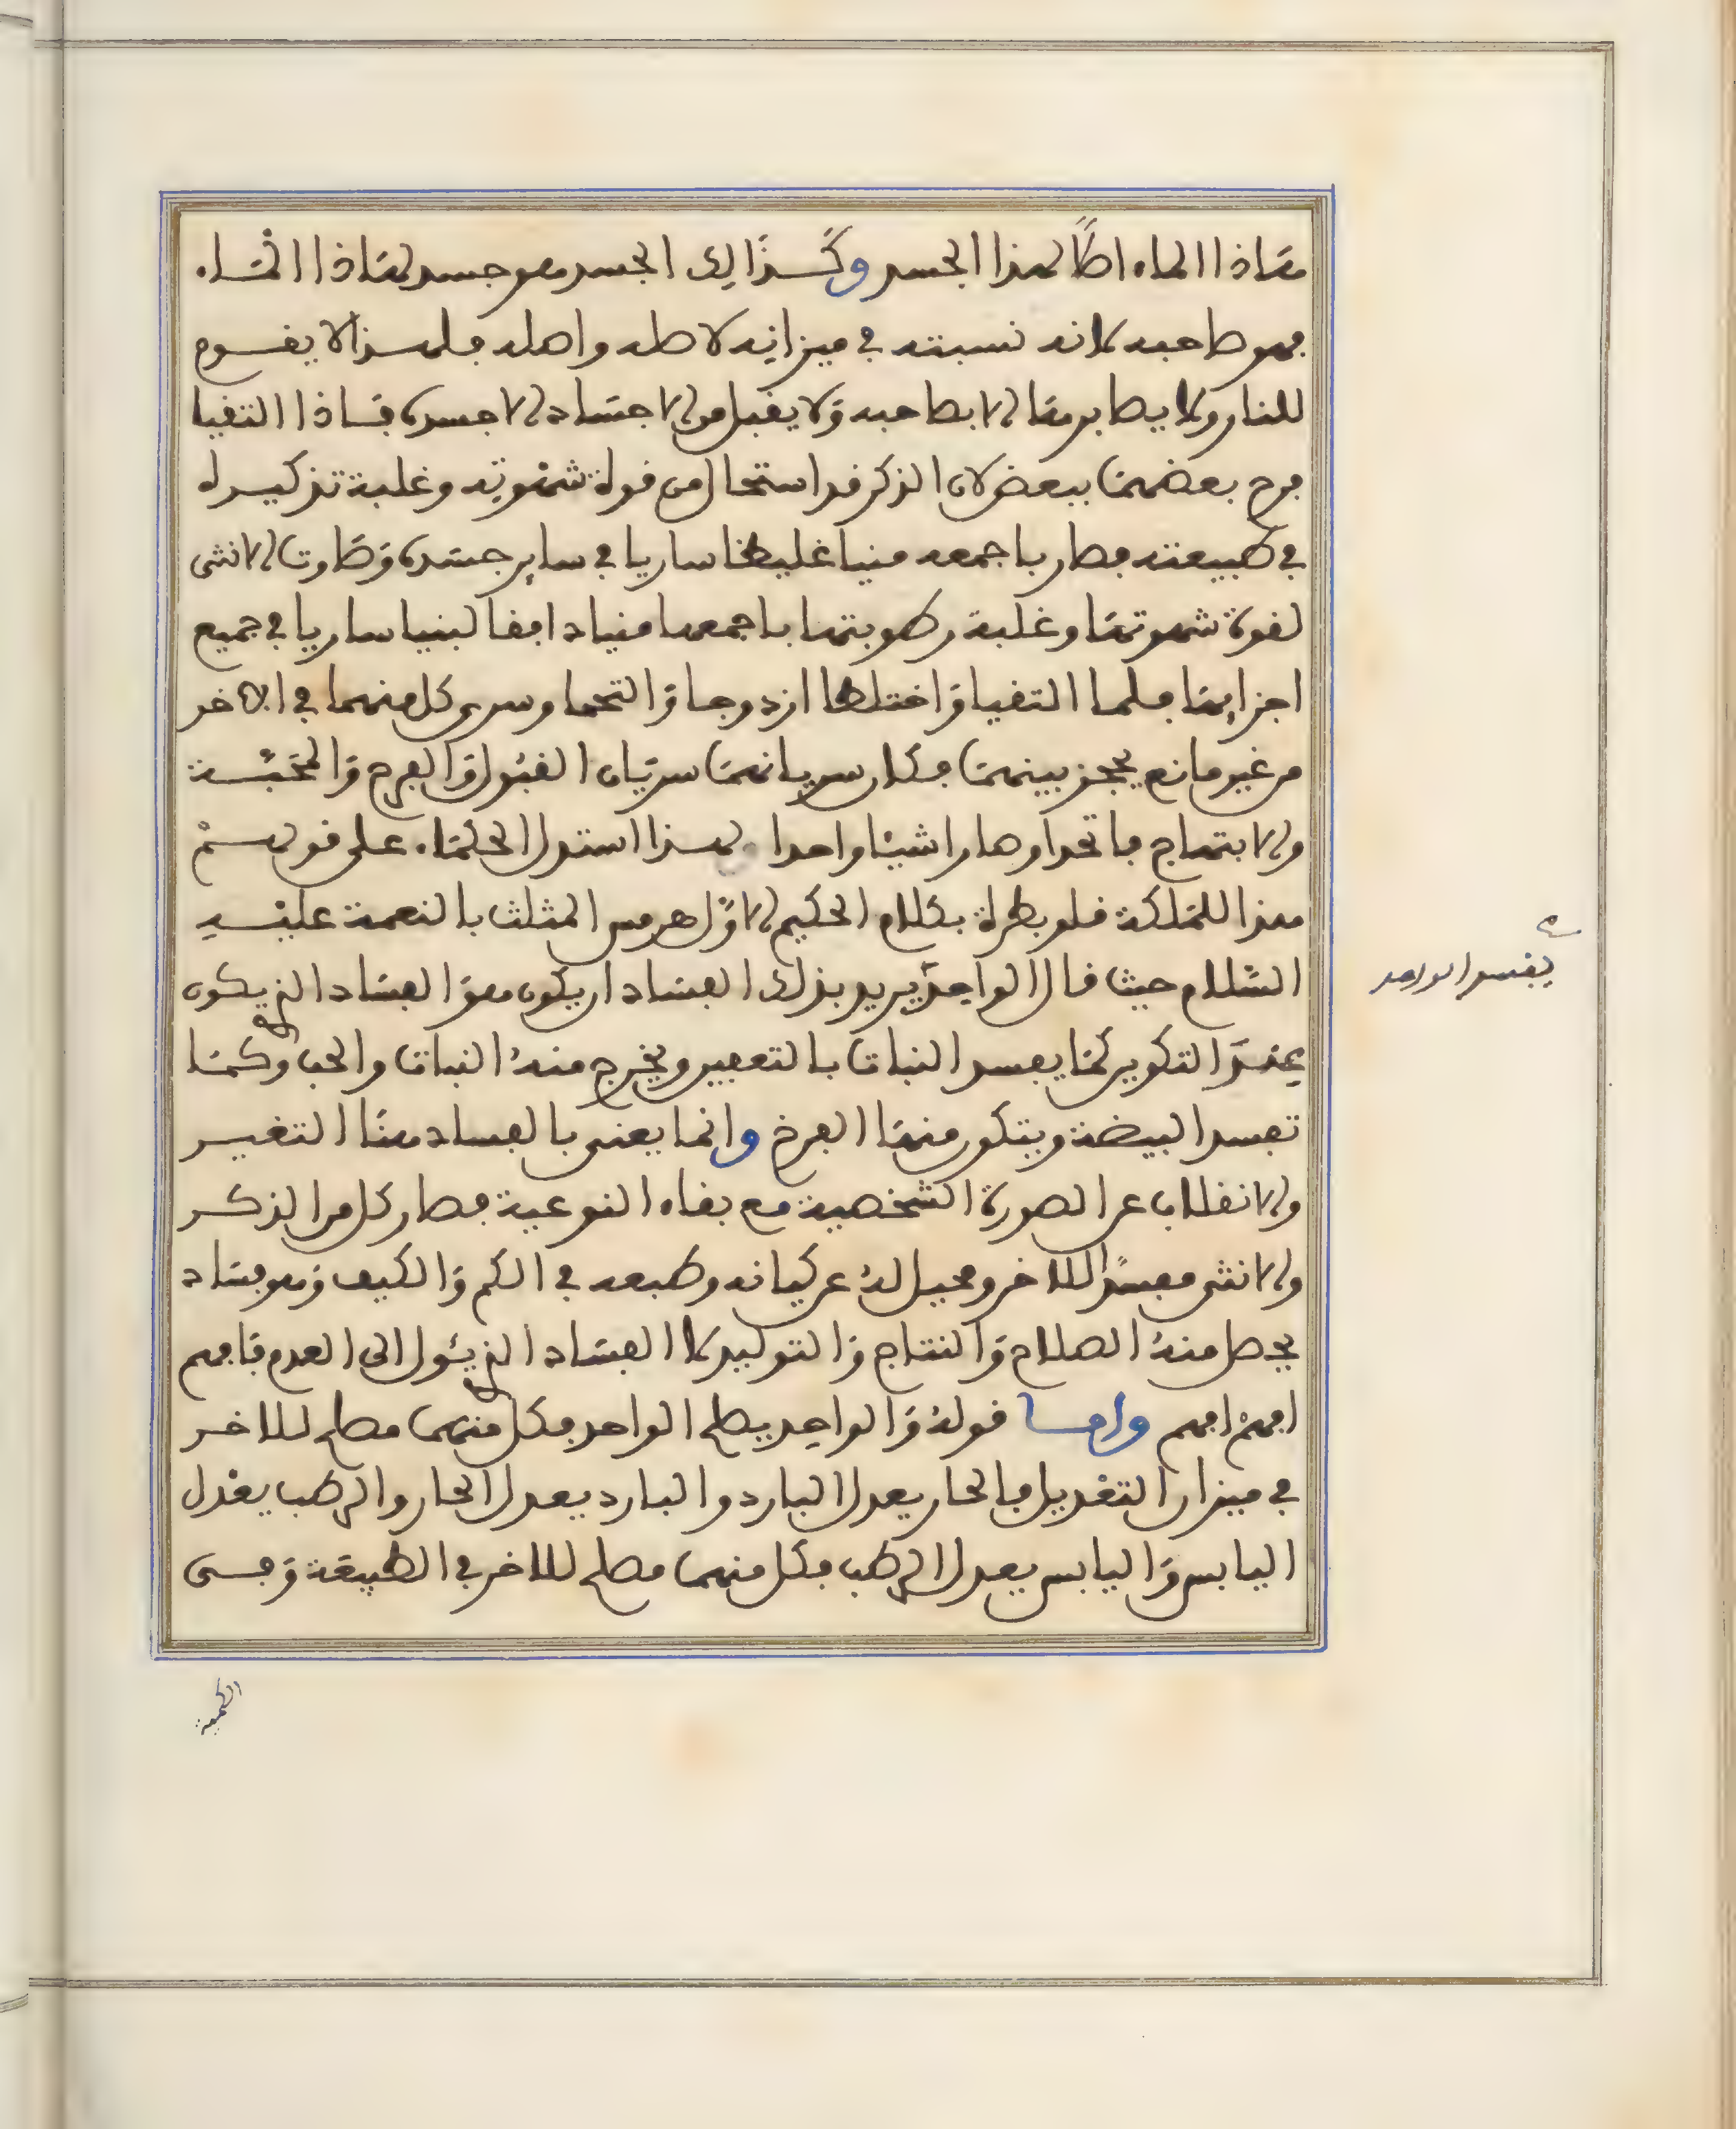 فهاذا الماء اصلا لهذا الجسد وكذالك الجسد هو جسد لهاذا الماء
فهو صاحبه لانه نسبته في ميزانه لاصله واهله فلهذا لا يقوم
للنار ولا يصابرها الا بصاحبه ولا يقبل من الاجساد الا جسده فاذا التقيا
فرح بعضهما ببعض لان الذكر قد استحال من قوة شهوته وغلبة تذكيره
في طبيعته فصار باجمعه منيا غليظا ساريا في ساير جسده وصارت الانثى
لقوة شهوتها وغلبة رطوبتها باجمعها منيا دافقا لبنيا ساريا في جميع
اجزايها فلما التقيا واختلطا ازدوجا والتحما وسرى كل منهما في الاخر
من غير مانع يحجز بينهما فكان سريانهما سريان القبول والفرح والمحبة
والابتهاج فاتحدا وصارا شيئا واحدا ولهذا استدل الحكماء على قولهم
هذا للملكة قلوبطرة بكلام الحكيم الاول هرمس المثلث بالنعمة عليه
السلام حيث قال الواحد يريد بذلك الفساد ان يكون هو الفساد الذي يكون
عنه التكوين كما يفسد النبات بالتعفين ويخرج منه النبات والحب وكما
تفسد البيضة ويتكون منها الفرخ وانما يعنى بالفساد هنا التغيير
والانقلاب عن الصورة الشخصية مع بقاء النوعية فصار كل من الذكر
والانثى مفسدا للاخر ومحيل له عن كيانه وطبعه في الكم والكيف وهو فساد
يحصل منه الصلاح والنتاج والتوليد لا الفساد الذي يئول الى العدم فافهم
افهم افهم واما قوله والواحد يصلح الواحد فكل منهما مصلح للاخر
في ميزان التعديل فالحار يعدل البارد والبارد يعدل الحار والرطب يعدل
اليابس واليابس يعدل الرطب فكل منهما مصلح للاخر في الطبيعة وفى
يفسد الواحد
الكمية